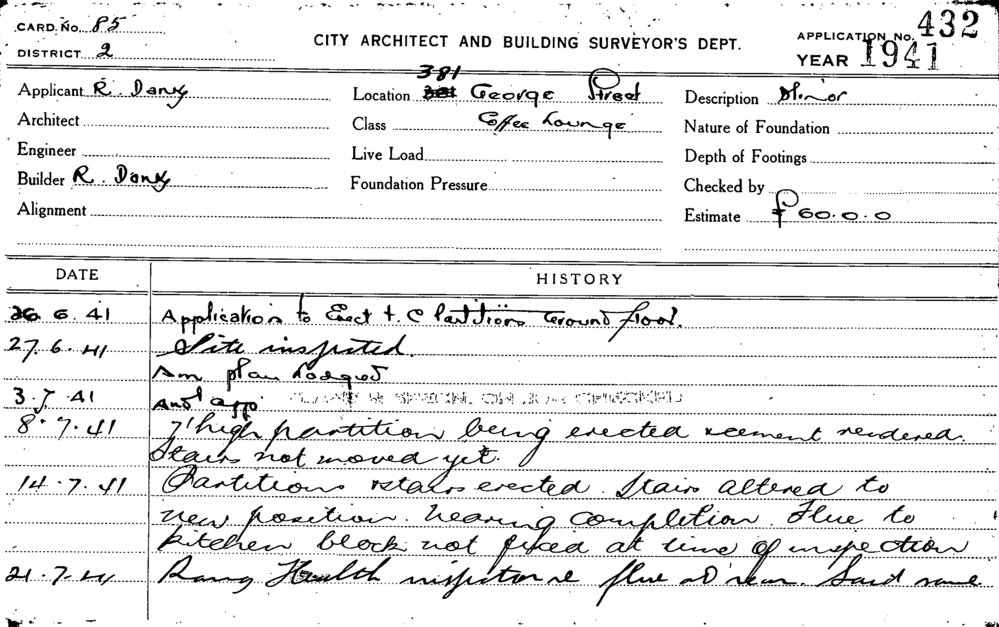 CARD No. 85
DISTRICT 2
CITY ARCHITECT AND BUILDING SURVEYOR'S DEPT.
APPLICATION No. 432
YEAR 1941
Applicant R. Danks
Location 381 George Street
Description Minor
Architect
Class Coffee Lounge
Nature of Foundation
Engineer
Live Load
Depth of Footings
Builder R. Danks
Foundation Pressure
Checked by
Alignment
Estimate £60.0.0
DATE
HISTORY
26 6. 41 Application to Erect t. c Partitions Ground floor.
27. 6. 41 Site inspected.
Am plan Lodged
3. 7. 41 and app
8. 7. 41 7' high partition being erected & cement rendered.
Stairs not moved yet.
14. 7. 41 Partitions & stairs erected. Stairs altered to
new position. Nearing completion. Flue to
kitchen block not fixed at time of inspection
21. 7. 41 Rang Health inspector re flue at rear. Said same